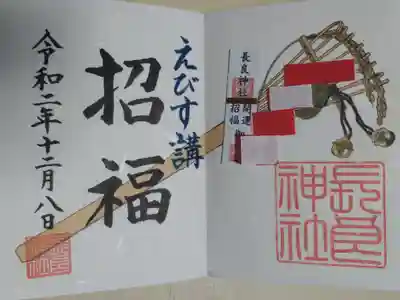 えびす講
招福
令和二年十二月八日
長良神社
開運
招福
長良
神社